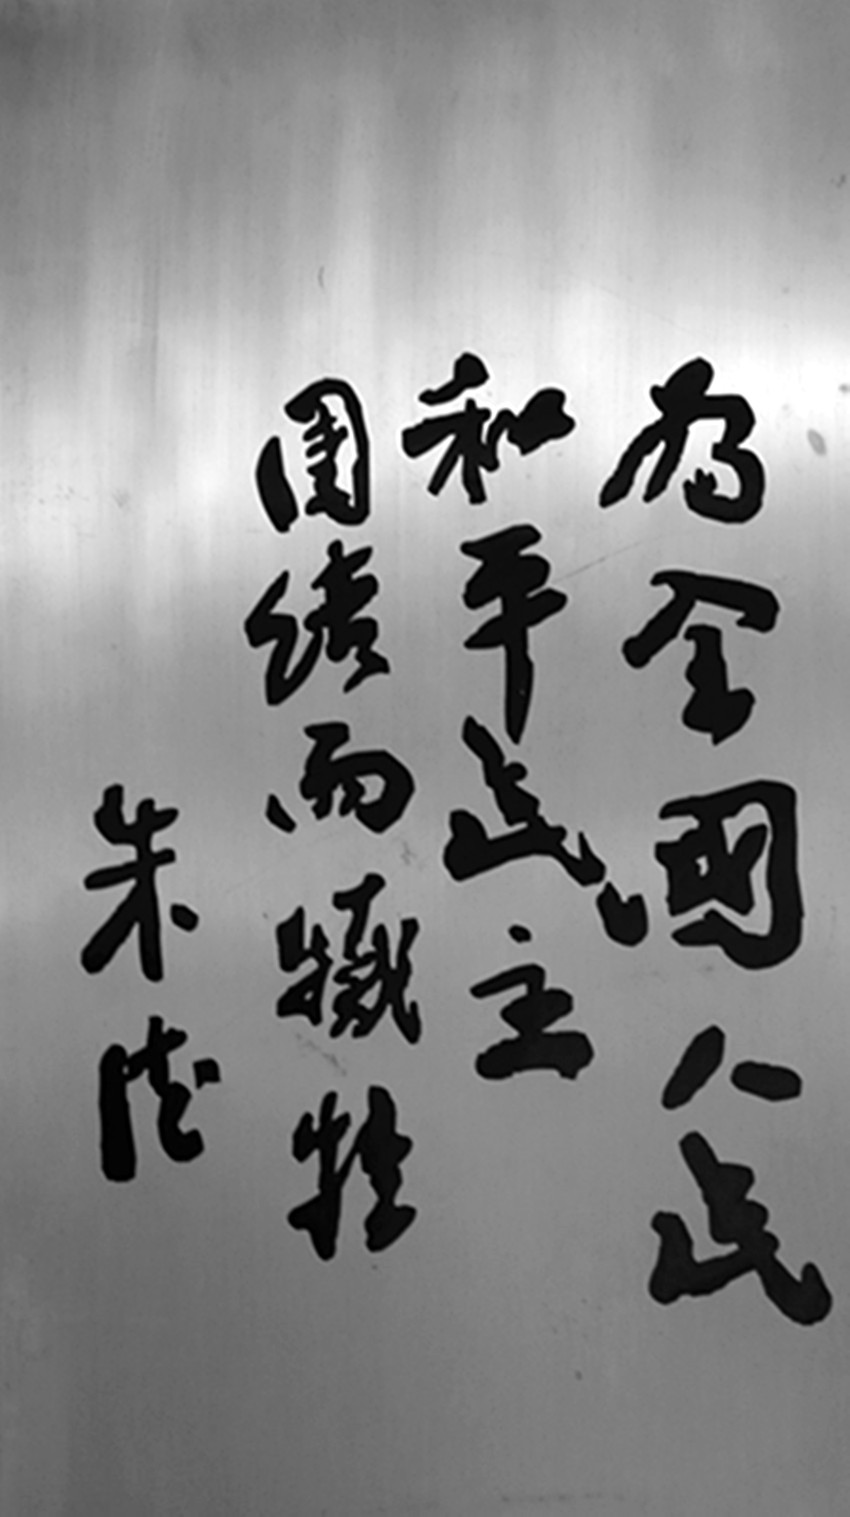 为全國人民
和平民主
團结而犠牲
朱德